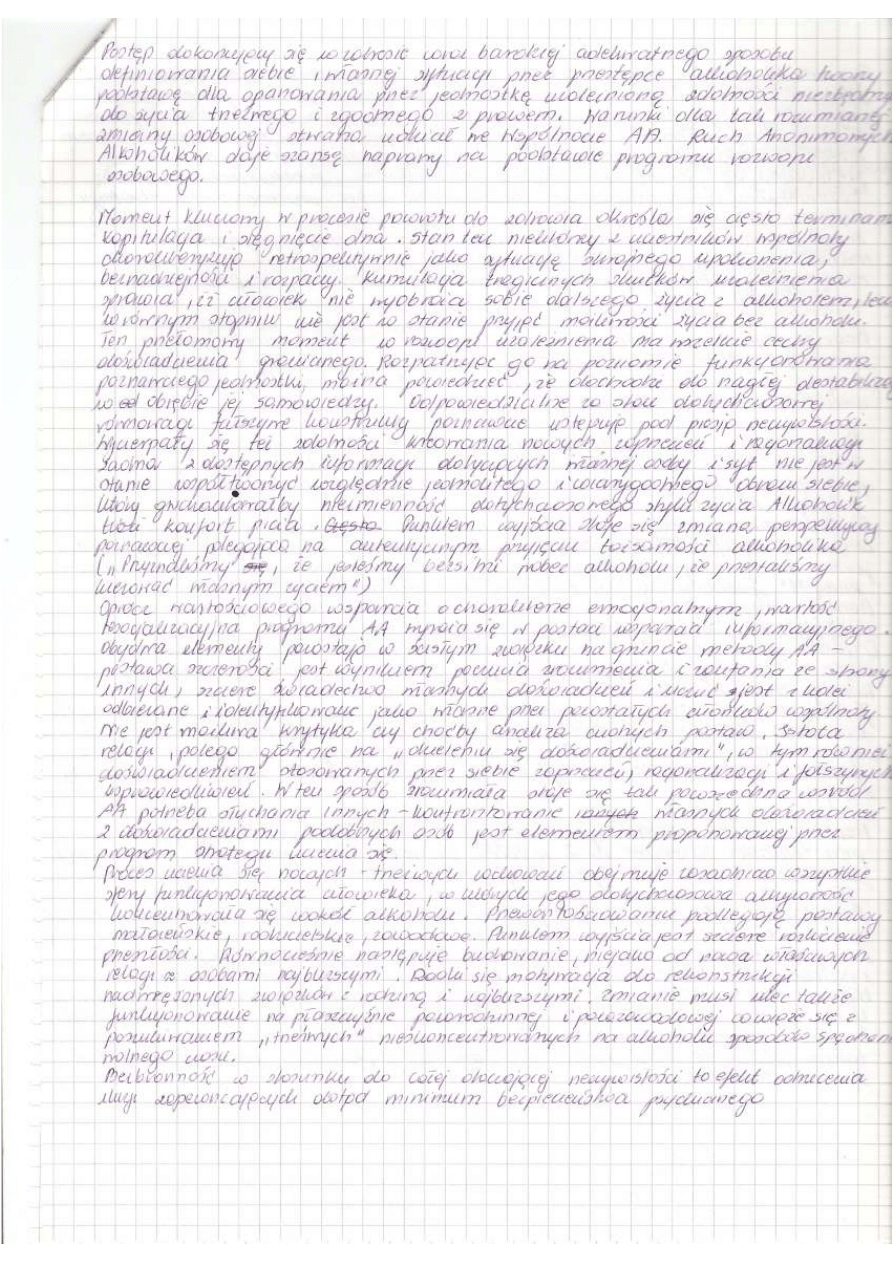 Postęp dokonujący się w zakresie coraz bardziej adekwatnego sposobu
definiowania siebie i własnej sytuacji przez przestępcę alkoholika tworzy
podstawę dla opanowania przez jednostkę uzależnioną zdolności niezbędnych
do życia trzeźwego i zgodnego z prawem. Warunki dla tak rozumianej
zmiany osobowej stwarza udział we Wspólnocie AA. Ruch Anonimowych
Alkoholików daje szansę naprawy na podstawie programu rozwoju
osobowego.
Moment kluczowy w procesie powrotu do zdrowia określa się często terminami
kapitulacja i sięgnięcie dna. Stan ten niektórzy z uczestników wspólnoty
charakteryzują retrospektywnie jako sytuację skrajnego upokorzenia,
beznadziejności i rozpaczy. Kumulacja tragicznych skutków uzależnienia
sprawia, iż człowiek nie wyobraża sobie dalszego życia z alkoholem, lecz
w równym stopniu nie jest w stanie przyjąć możliwości życia bez alkoholu.
Ten przełomowy moment w rozwoju uzależnienia ma wszelkie cechy
doświadczenia granicznego. Rozpatrując go na poziomie funkcjonowania
poznawczego jednostki, można powiedzieć, że dochodzi do nagłej destabilizacji
w obrębie jej samowiedzy. Odpowiedzialne za stan dotychczasowej
równowagi fałszywe konstrukty poznawcze ustępują pod presją rzeczywistości.
Wyczerpały się też zdolności kreowania nowych zaprzeczeń i racjonalizacji
Żadna z dostępnych informacji dotyczących własnej osoby i syt nie jest w
stanie współtworzyć względnie jednolitego i wiarygodnego obrazu siebie,
który gwarantowałby niezmienność dotychczasowego stylu życia Alkoholik
traci komfort picia. Często Punktem wyjścia staje się zmiana perspektywy
poznawczej polegająca na autentycznym przyjęciu tożsamości alkoholika
(„Przyznaliśmy się, że jesteśmy bezsilni wobec alkoholu, że przestaliśmy
kierować własnym życiem")
Oprócz wartościowego wsparcia o charakterze emocjonalnym, wartość
resocjalizacyjna programu AA wyraża się w postaci wsparcia informacyjnego -
obydwa elementy pozostają w ścisłym związku na gruncie metody AA -
postawa szczerości jest wynikiem poczucia zrozumienia i zaufania ze strony
innych, szczere świadectwo własnych doświadczeń i uczuć jest z kolei
odbierane i identyfikowane jako własne przez pozostałych członków wspólnoty
Nie jest możliwa krytyka czy choćby analiza cudzych postaw. Istota
relacji, polega głównie na „dzieleniu się doświadczeniami", w tym również
doświadczeniem stosowanych przez siebie zaprzeczeń, racjonalizacji i fałszywych
usprawiedliwień. W ten sposób zrozumiała staje się tak powszechna wśród
AA potrzeba słuchania innych - konfrontowanie własnych doświadczeń
z doświadczeniami podobnych osób jest elementem proponowanej przez
program strategii uczenia się.
Proces uczenia się nowych - trzeźwych zachowań obejmuje zasadniczo wszystkie
sfery funkcjonowania człowieka, w których jego dotychczasowa aktywność
koncentrowała się wokół alkoholu. Przewartościowaniu podlegają postawy
małżeńskie, rodzicielskie, zawodowe. Punktem wyjścia jest szczere rozliczenie
przeszłości. Równocześnie następuje budowanie, niejako od nowa właściwych
relacji z osobami najbliższymi. Rodzi się motywacja do rekonstrukcji
nadwyrężonych związków z rodziną i najbliższymi. Zmianie musi ulec także
funkcjonowanie na płaszczyźnie pozarodzinnej i pozazawodowej co wiąże się z
poszukiwaniem „trzeźwych" nieskoncentrowanych na alkoholu sposobów spędzania
wolnego czasu.
Bezbronność w stosunku do całej otaczającej rzeczywistości to efekt odrzucenia
iluzji zapewniających dotąd minimum bezpieczeństwa psychicznego